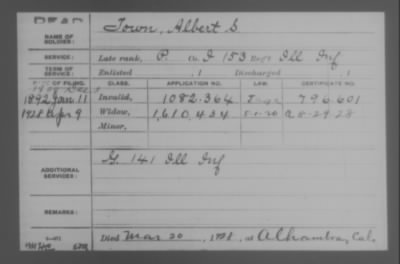 DEAD
NAME OF SOLDIER: Town, Albert S
SERVICE: Late rank, P. Co. I 153 Reg't Ill Inf
TERM OF SERVICE: Enlisted , 1 Discharged , 1
DATE OF FILING. CLASS. APPLICATION NO. LAW. CERTIFICATE NO.
1892 Jan 11 Invalid, 1082.364 796.601
1928 Apr 9 Widow, 1,610,434 5-1-20 A 8-29 28
Minor,
ADDITIONAL SERVICES: G. 141 Ill Inf
REMARKS:
Died Mar 20, 1928, at Alhambra, Cal.